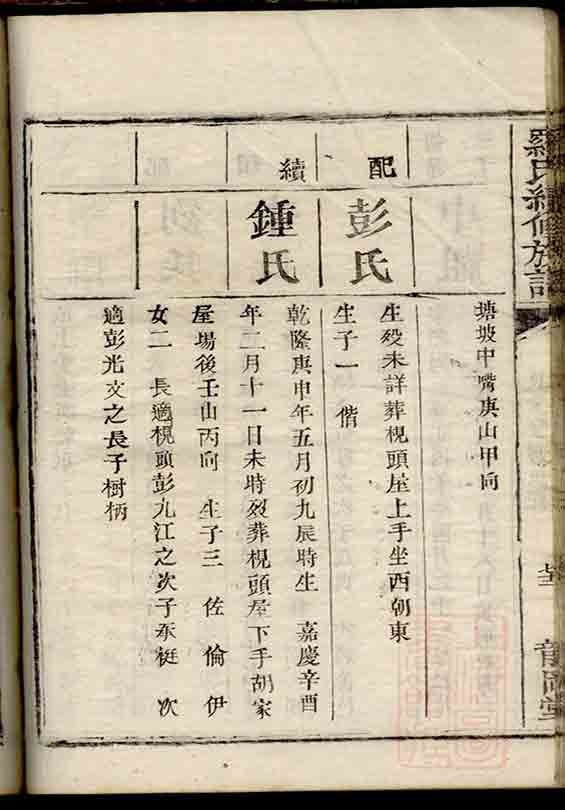 羅氏續修族譜
塘坡中嘴庚山甲向
配
彭氏
生殁未詳葬梘頭屋上手坐西朝東
生子一 偕
續
鍾氏
乾隆庚申年五月初九辰時生 嘉慶辛酉
年二月十一日未時殁葬梘頭屋下手胡家
屋場後壬山丙向 生子三 佐 倫 伊
女二 長適梘頭彭九江之次子 次
適彭光文之長子樹柄